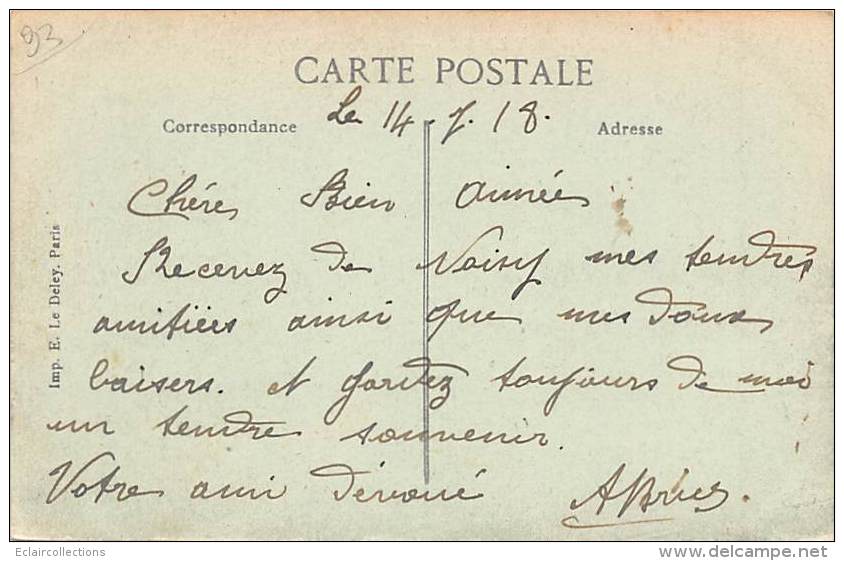 93
CARTE POSTALE
Correspondance Le 14. 7. 18. Adresse
Chére Bien aimée
Recevez de Noisy mes tendres
amitiées ainsi que mes doux
baisers. et gardez toujours de moi
un tendre souvenir.
Votre ami dévoué
Imp. E. Le Deley. Paris
Eclaircollections
www.delcampe.net